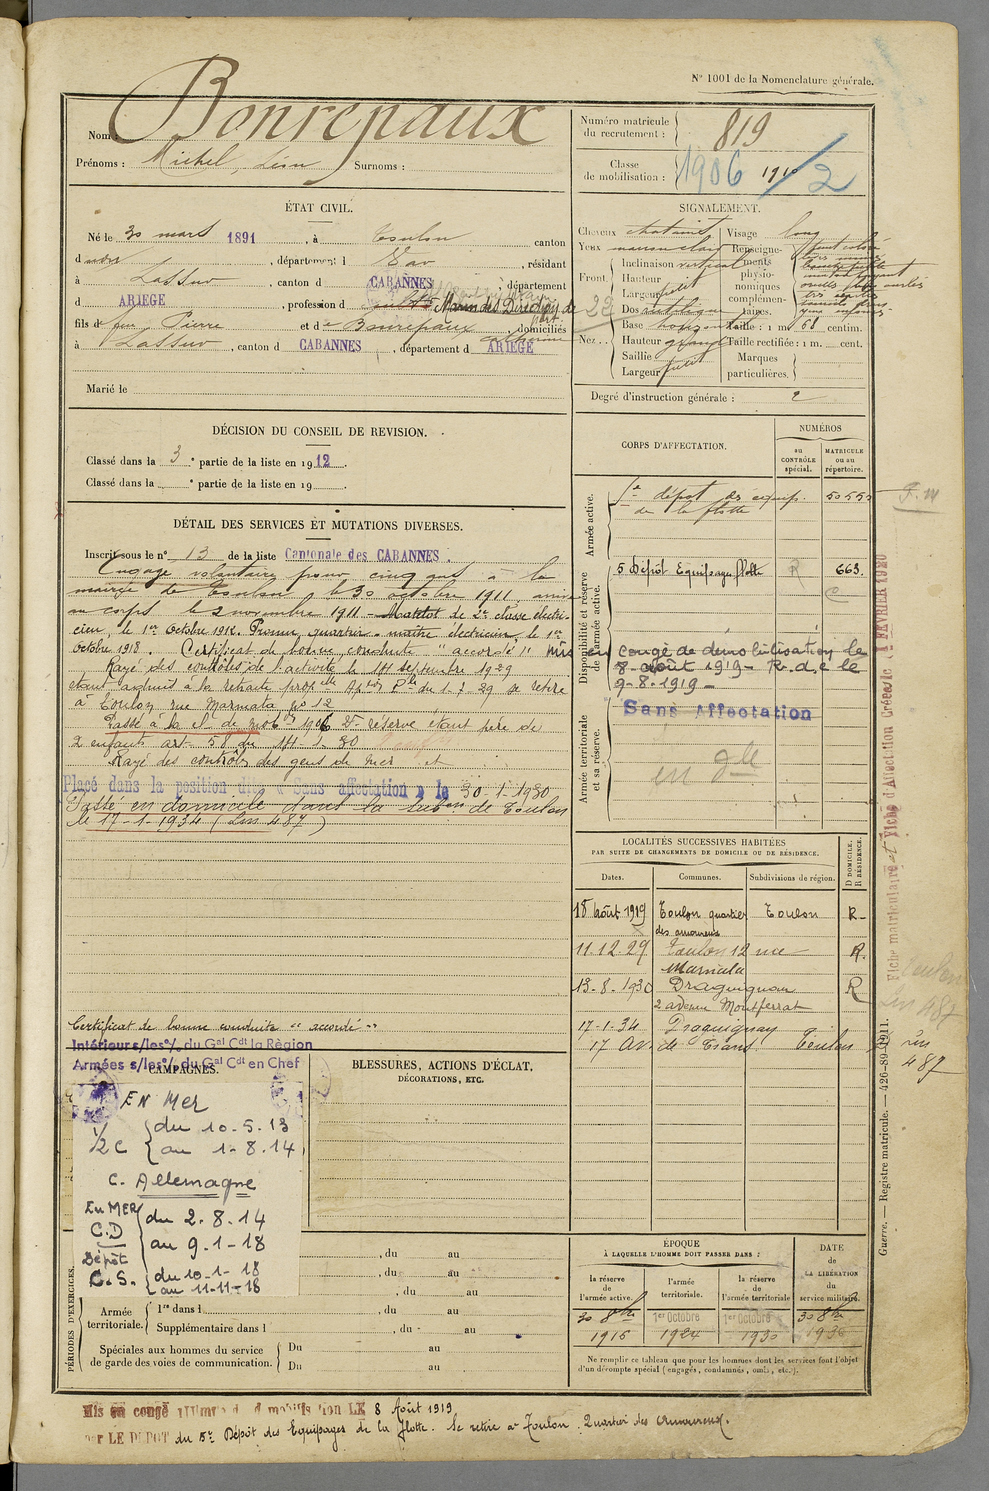 N° 1001 de la Nomenclature générale.
Nom : Bonrepaux
Prénoms : Michel, Léon Surnoms :
Numéro matricule du recrutement : 819
Classe de mobilisation : 1906 1910/2
ÉTAT CIVIL.
Né le 30 mars 1891, à Toulon canton
dudit, département d Var, résidant
à Lassur, canton d CABANNES, département
d ARIEGE, profession d Marin des Direct. de port
fils d feu Pierre et de Bonrepaux, domiciliés
à Lassur, canton d CABANNES, département d ARIEGE
Marié le
SIGNALEMENT.
Cheveux chatains
Yeux marron clair
Front Inclinaison vertical
Hauteur
Largeur petit
Nez Dos rectiligne
Base horizontal
Hauteur grand
Saillie
Largeur petit
Visage long
Renseignements physionomiques complémentaires.
Taille : 1 m 68 centim.
Taille rectifiée : 1 m. cent.
Marques particulières.
Degré d'instruction générale : 2
DÉCISION DU CONSEIL DE REVISION.
Classé dans la 3e partie de la liste en 1912.
Classé dans la e partie de la liste en 19
DÉTAIL DES SERVICES ET MUTATIONS DIVERSES.
Inscrit sous le n° 13 de la liste Cantonale des CABANNES.
Engagé volontaire pour cinq ans à la
mairie de Toulon le 30 octobre 1911 arrivé
au corps le 2 novembre 1911. Matelot de 2e classe électri-
cien, le 1er Octobre 1912. Promu quartier-maître électricien le 1er
Octobre 1918. Certificat de bonne conduite "accordé".
Rayé des contrôles de l'activité le 14 septembre 1929
étant admis à la retraite propelle du 1.7.29 se retire
à Toulon rue Marmata no 12
Passé à la cl. de mobon 1906 2e réserve étant père de
2 enfants art. 58 du 14-1-30
Rayé des contrôles des gens de mer et
Placé dans la position dite "Sans affectation" le 30-1-1930
Passé en domicile dans la subon de Toulon
le 17-1-1934 (Lun 487)
Certificat de bonne conduite "accordé"
CORPS D'AFFECTATION.
NUMÉROS
au CONTRÔLE spécial.
MATRICULE ou au répertoire.
Armée active.
5e dépôt des équip. de la flotte 50555
Disponibilité et réserve de l'armée active.
5 Dépôt Equipages flotte R 663.
Mis en congé de démobilisation le
8 août 1919- R.d.c le
9-8-1919-
Armée territoriale et sa réserve.
Sans Affectation
en dlle
LOCALITÉS SUCCESSIVES HABITÉES
PAR SUITE DE CHANGEMENTS DE DOMICILE OU DE RÉSIDENCE.
Dates. Communes. Subdivisions de région. D DOMICILE. R RÉSIDENCE.
18 août 1919 Toulon quartier des amoureux Toulon R-
11.12.29 Toulon 12 rue Marmata R.
13-8-1930 Draguignan 2 avenue Montferrat R
17-1-34 Draguignan
17 Av. de Trans. Toulon
Intérieur s/les o/ du Gal Cdt la Région
Armées s/les o/ du Gal Cdt en Chef
CAMPAGNES.
EN MER
1/2 C du 10-5-13
au 1-8-14
C. Allemagne
En MER C.D du 2-8-14
au 9-1-18
Dépôt C.S. du 10-1-18
au 11-11-18
BLESSURES, ACTIONS D'ÉCLAT,
DÉCORATIONS, ETC.
PÉRIODES D'EXERCICES.
, du au
, du au
, du au
Armée territoriale. 1re dans l , du au
Supplémentaire dans l , du au
Spéciales aux hommes du service de garde des voies de communication. Du au
Du au
ÉPOQUE
À LAQUELLE L'HOMME DOIT PASSER DANS :
la réserve de l'armée active. l'armée territoriale. la réserve de l'armée territoriale
DATE de LA LIBÉRATION du service militaire.
30 8bre 1916 1er Octobre 1924 1er Octobre 1930 30 8bre 1936
Ne remplir ce tableau que pour les hommes dont les services font l'objet
d'un décompte spécial (engagés, condamnés, omis, etc.).
Mis en congé illimité de démobilisation LE 8 Août 1919
par LE DEPOT du 5e Dépôt des Equipages de la flotte. Se retire à Toulon Quartier des Amoureux.
Guerre. — Registre matricule. — 426-89-1911.
Fiche matriculaire et Fiche d'Affectation Créées le FEVRIER 1920
F.M
Toulon
Lun 487
Lun
487